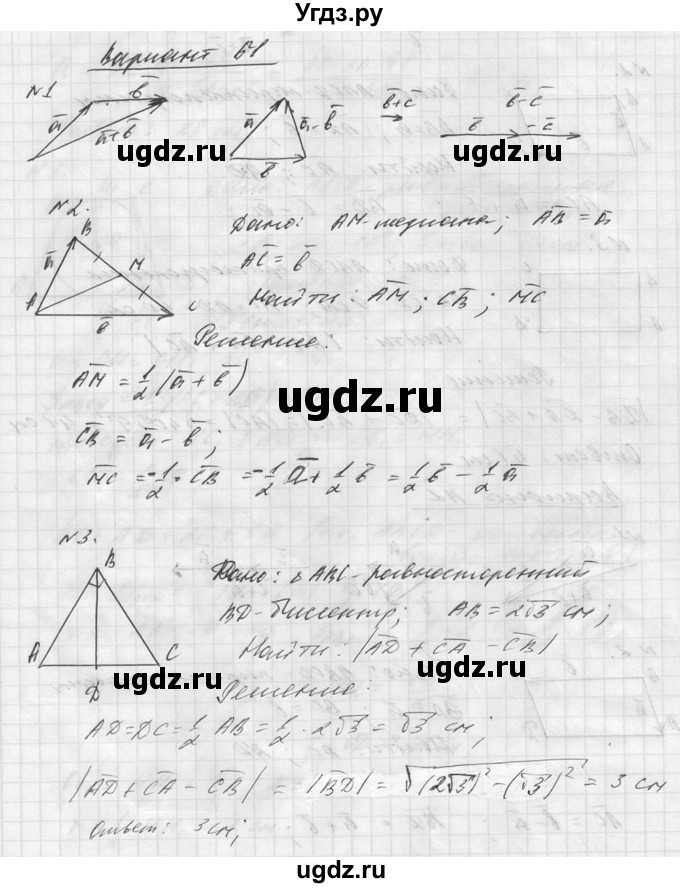 Угдз.ру
Вариант Б1
N1
a̅ b̅ a̅+b̅
a̅ a̅-b̅ b̅
b̅+c̅
b̅-c̅
b̅ -c̅
ugdz.ru ugdz.ru ugdz.ru
N2.
A B M C a̅ b̅
Дано: AM-медиана; A̅B̅ = a̅
A̅C̅ = b̅
Найти: A̅M̅; C̅B̅; M̅C̅
Решение:
A̅M̅ = 1/2 (a̅ + b̅)
ugdz.ru
C̅B̅ = a̅ - b̅;
M̅C̅ = -1/2 · C̅B̅ = -1/2 a̅ + 1/2 b̅ = 1/2 b̅ - 1/2 a̅
N3.
ugdz.ru ugdz.ru
A B C D
Дано: ΔABC-равносторонний
BD-биссектр; AB = 2√3 см;
Найти: |A̅D̅ + C̅A̅ - C̅B̅|
ugdz.ru ugdz.ru
Решение:
AD=DC=1/2 AB = 1/2 · 2√3 = √3 см;
|A̅D̅ + C̅A̅ - C̅B̅| = |B̅D̅| = √((2√3)² - (√3)²) = 3 см
Ответ: 3 см;
ugdz.ru
ugdz.ru